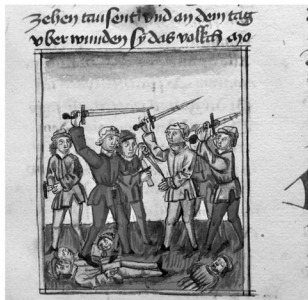 zehen tausent vnd an dem tag
vber wunden sy das volkch mo